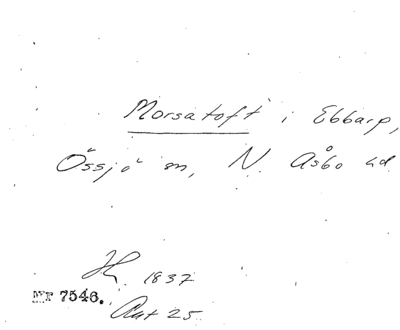 Morsatoft i Ebbarp,
Össjö sn, N. Åsbo hd
H 1837
Nr 7546.
Akt 25